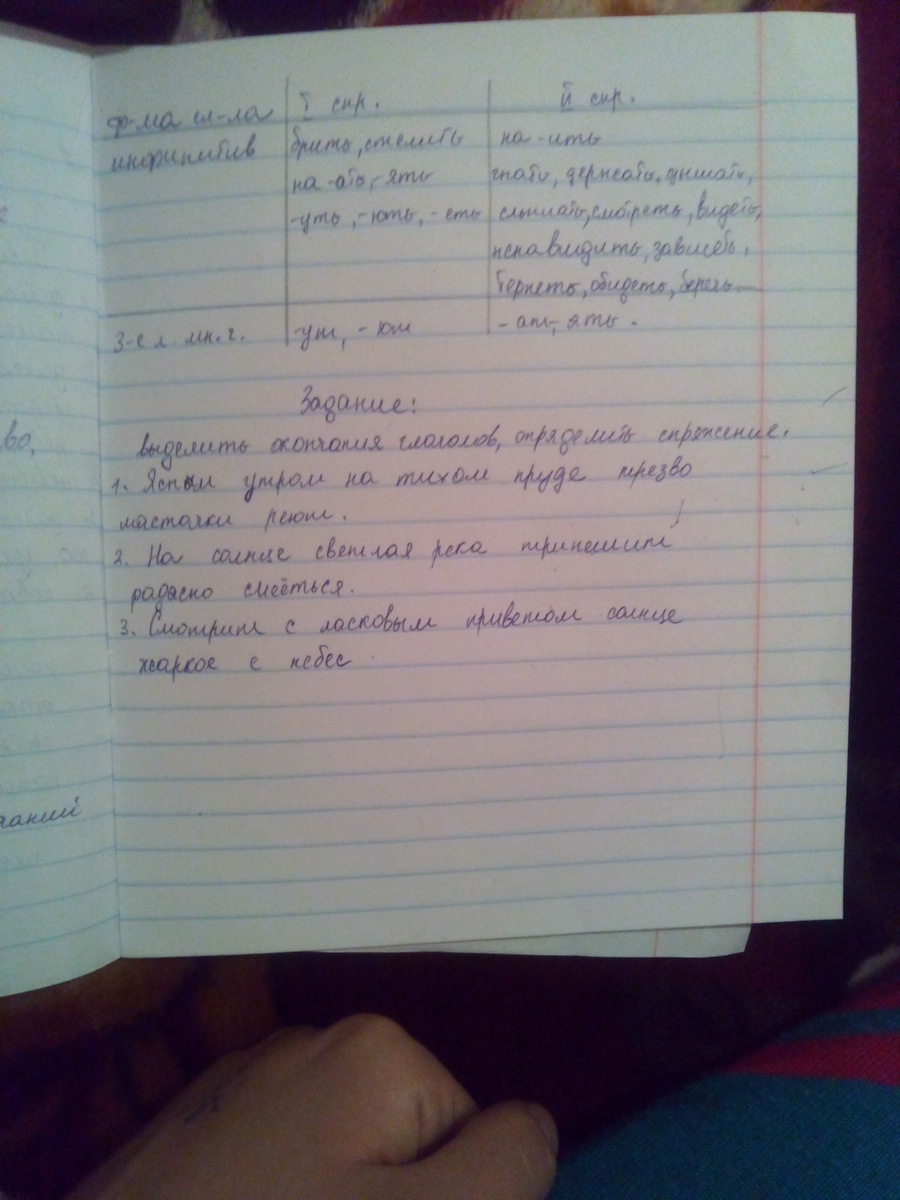 ф-ма гл-ла I спр. II спр.
инфинитив брить, стелить на -ить
на -ать, -ять гнать, держать, дышать,
-уть, -ють, -еть слышать, смотреть, видеть,
ненавидить, зависеть,
терпеть, обидеть, беречь
3-е л. мн. ч. -ут, -ют -ат, ять.
Задание:
выделить окончания глаголов, определить спряжение.
1. Ясным утром на тихом пруде резво
ласточки реют.
2. На солнце светлая река трипещит
радасно смеёться.
3. Смотрит с ласковым приветом солнце
жаркое с небес
во,
ганий